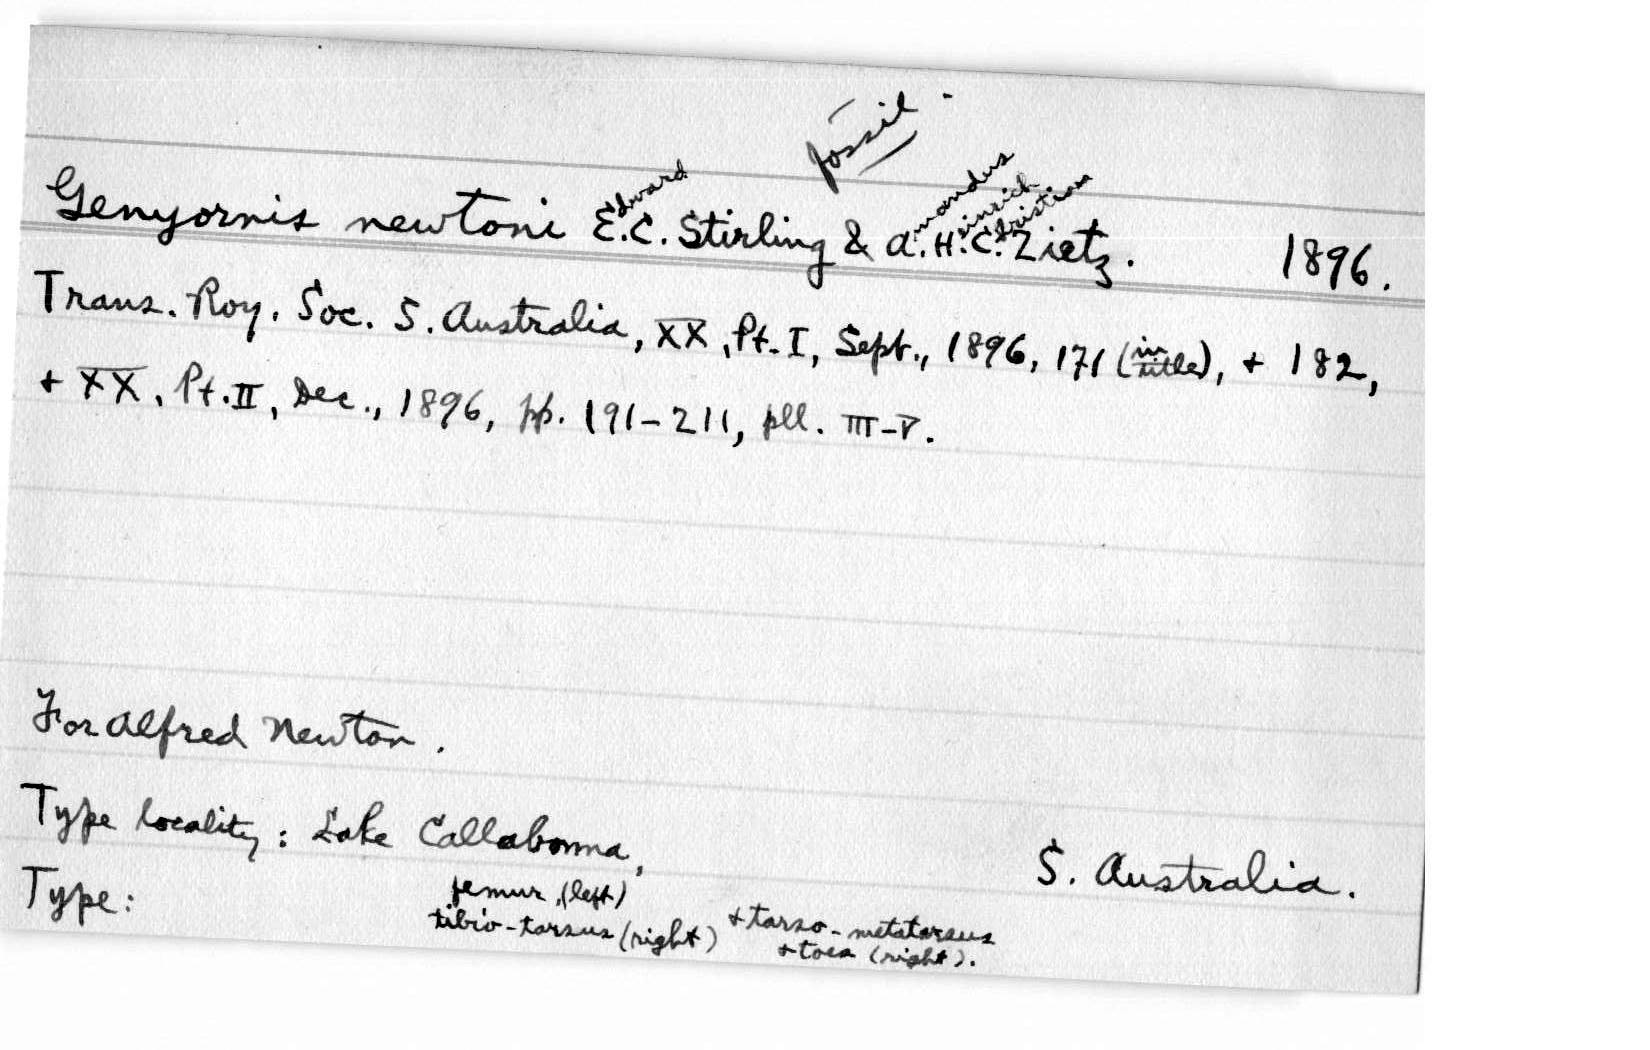 fossil.
Genyornis newtoni E.dward C. Stirling & A.mandus H.einrich C.hristian Zietz. 1896.
Trans. Roy. Soc. S. Australia, XX, Pt. I, Sept., 1896, 171 (in title), + 182,
+ XX, Pt. II, Dec., 1896, pp. 191-211, pll. III-V.
For Alfred Newton.
Type locality: Lake Callabonna, S. Australia.
Type: femur, (left)
tibio-tarsus (right) + tarso-metatarsus
+ toes (right).